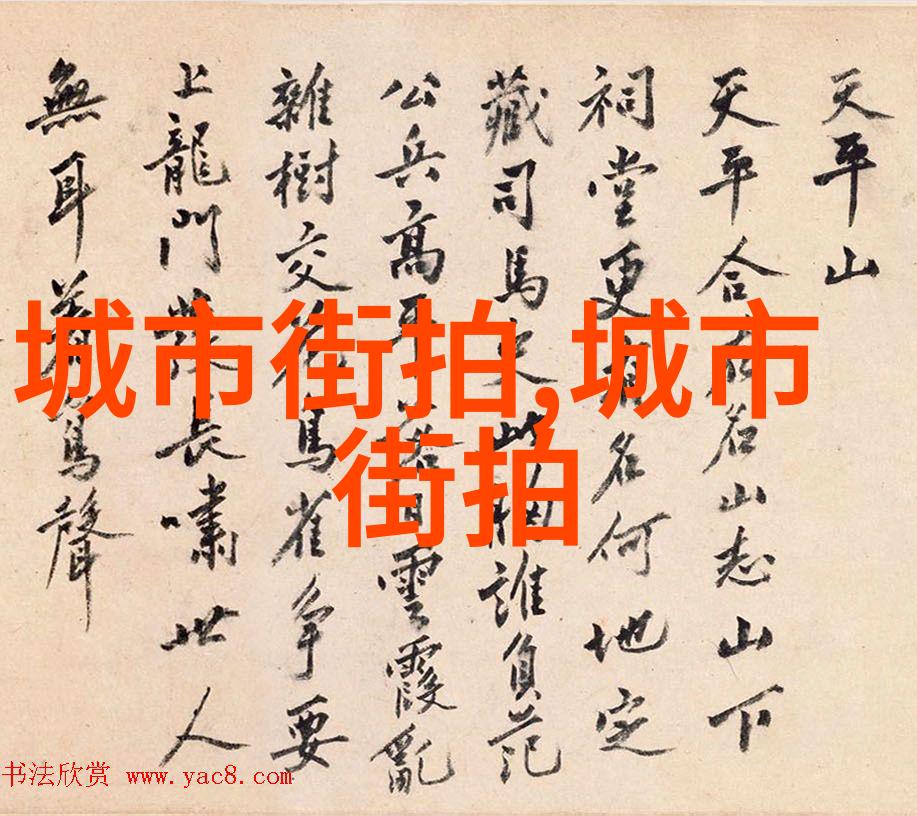 天平山
天平合名山志山下
祠堂更名何地定
藏司馬史此胸誰負范
公兵高平日雲霞亂
雜樹交鳥雀爭要
上龍門長嘯世人
無耳聲
城市街拍,城市
街拍
书法欣赏 www.yac8.com